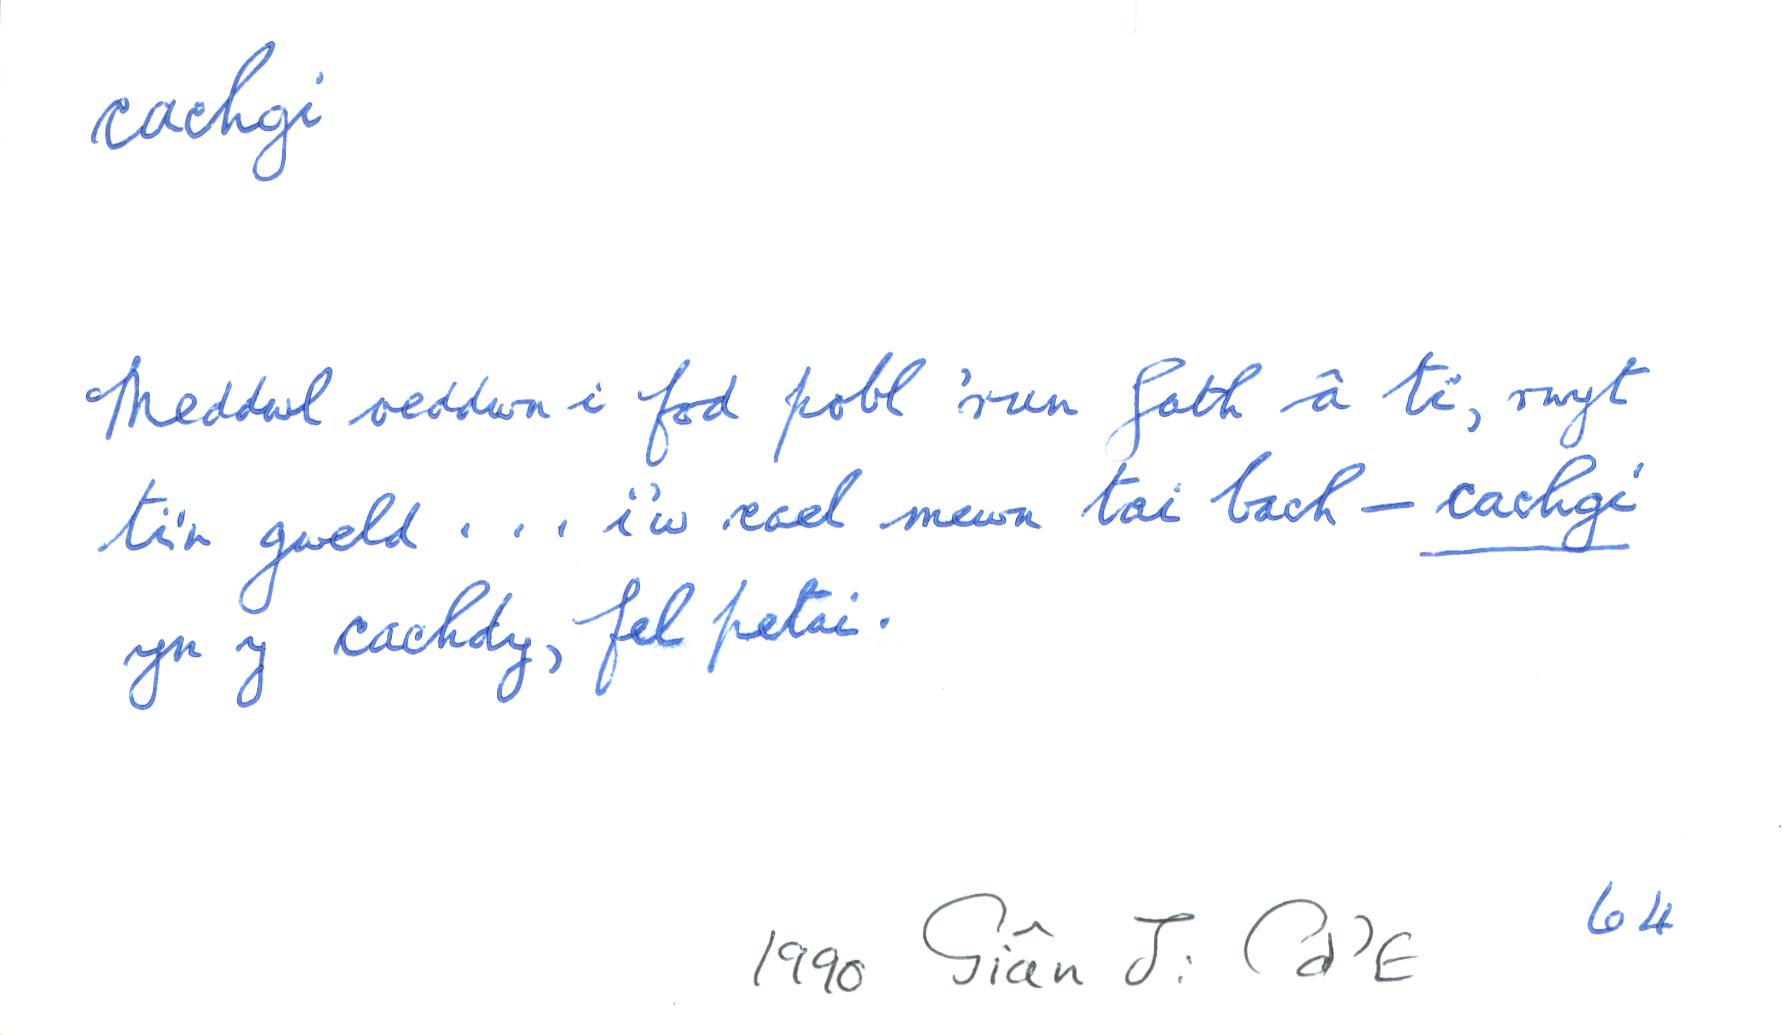 cachgi
Meddwl oeddwn i fod pobl 'run fath â ti, rwyt
ti'n gweld . . . i'w cael mewn tai bach – cachgi
yn y cachdy, fel petai.
64
1990 Siân J: Cd'E